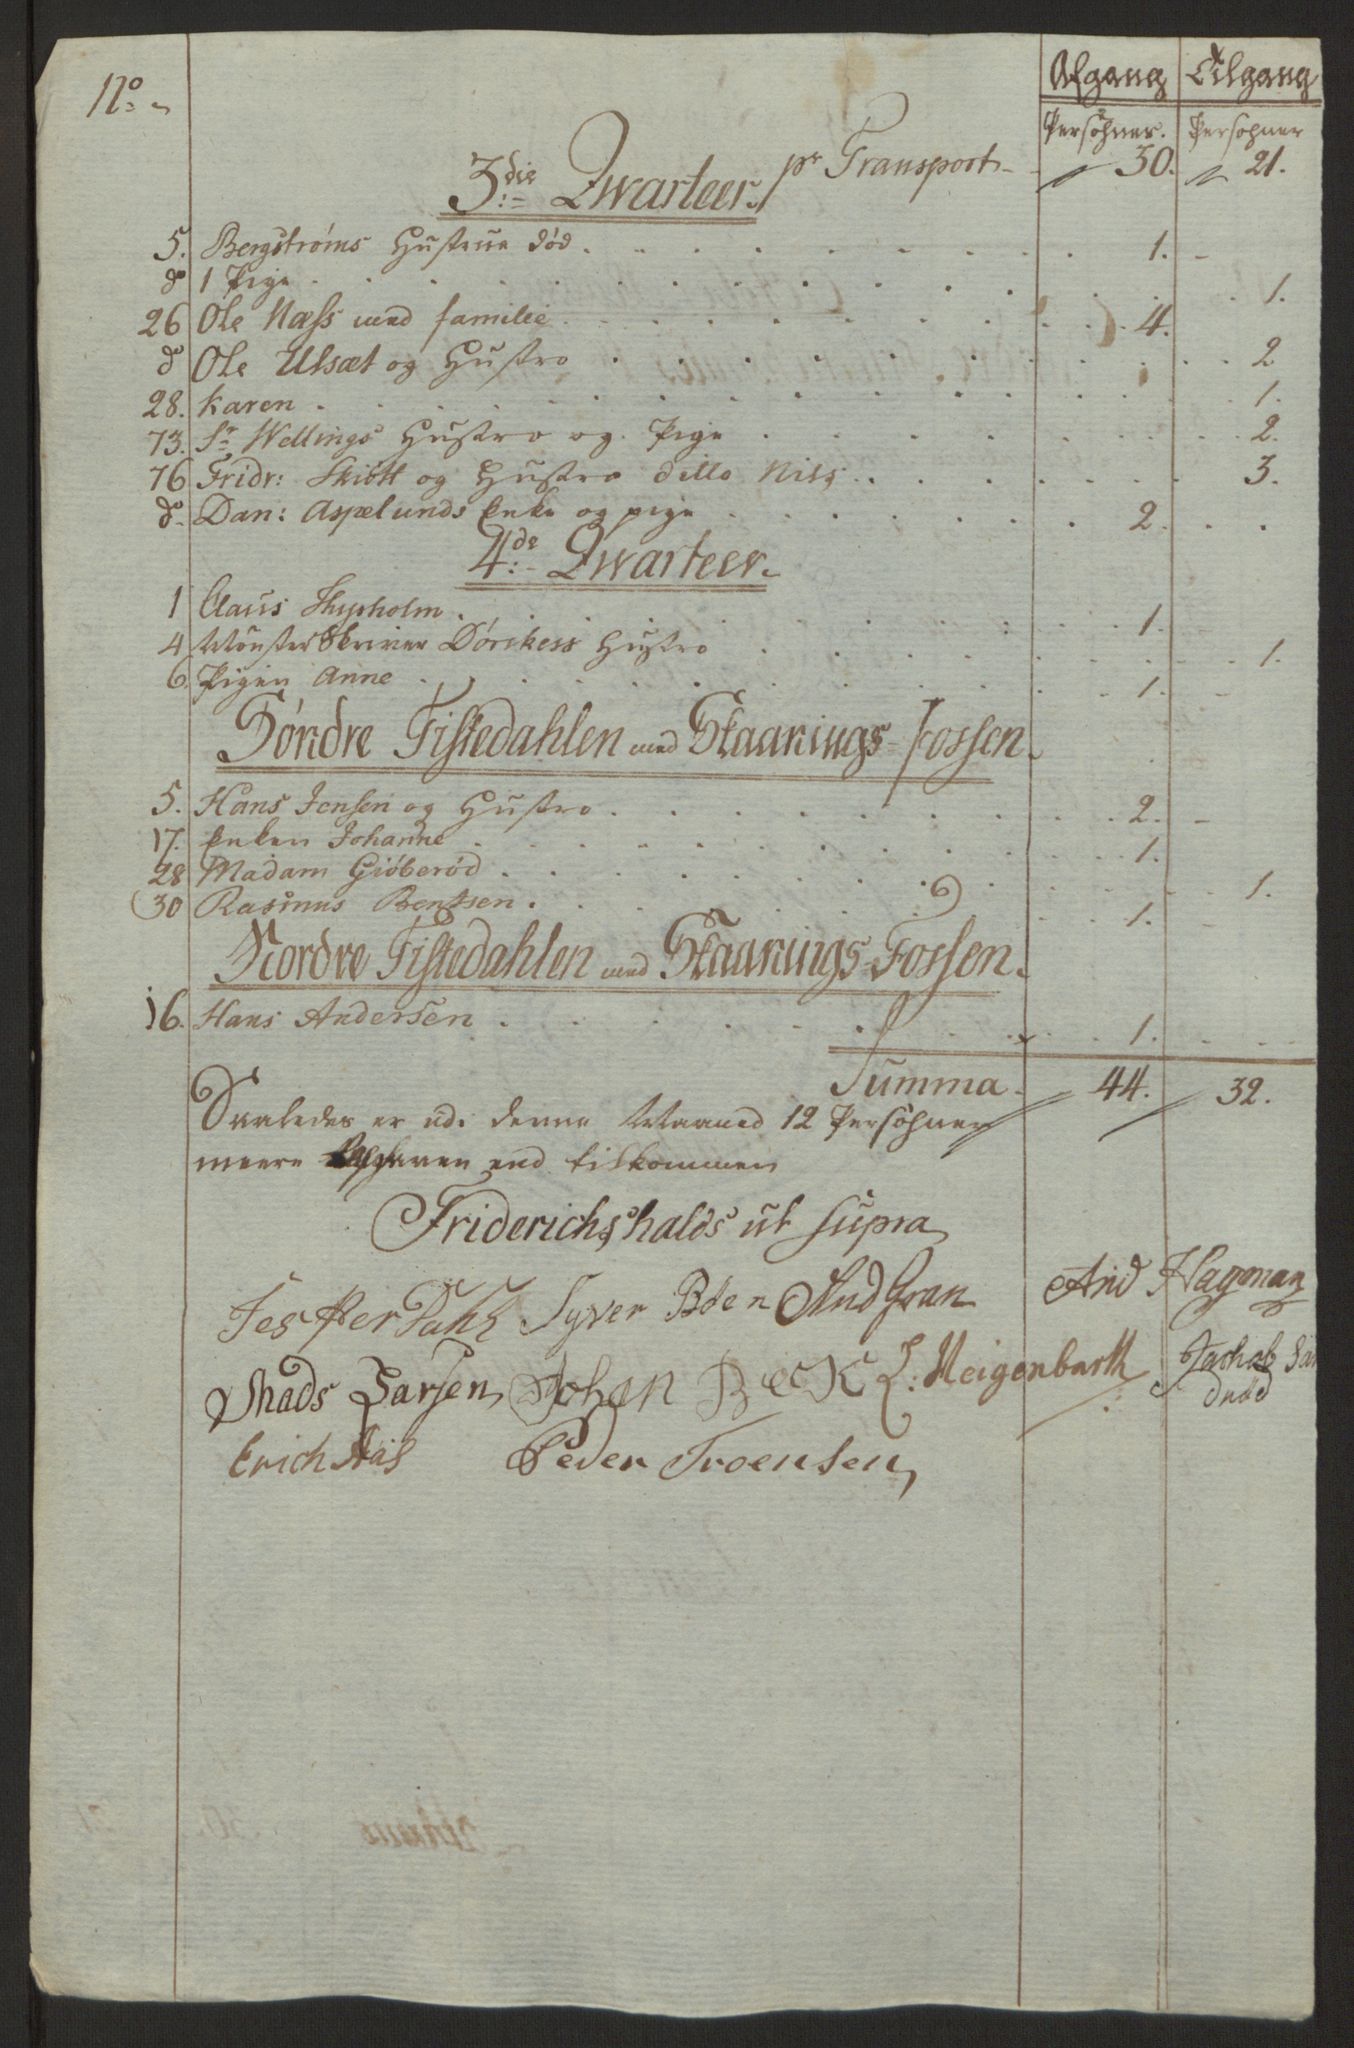 No Afgang Tilgang
Persohner. Persohner
3die Qwarteer. pr Transport 30. 21.
5. Bergstrøms Hustrue død 1.
do 1 Pige 1.
26 Ole Næss med familie 4.
do Ole Ulsæt og Hustro 2
28. Karen 1.
73. Sr Wellings Hustro og Pige 2.
76 Fridr: Skiøtt og Hustro ditto Nils 3.
do. Dan: Aspelunds Enke og pige 2.
4de Qwarteer.
1 Claus Thysholm 1.
4 Mønster Skriver Dørckess Hustro 1.
6. Pigen Anne 1.
Søndre Tistedahlen med Skaanings Fossen.
5. Hans Jensen og Hustro 2.
17. Enken Johanne 1.
28 Madam Giøberød 1.
30 Rasmus Bentsen 1.
Nordre Tistedahlen med Skaanings Fossen.
16. Hans Andersen 1.
Summa 44. 32.
Saaledes er udi denne Maaned 12 Persohner
meere end tilkommen
Friderichshalds ut supra
Jesper Dahl Syver Bøen And Gran And Hagman
Mads Larsen Johan Beck L: Meigenbarth Jachob
Erich Aas Peder Troensen